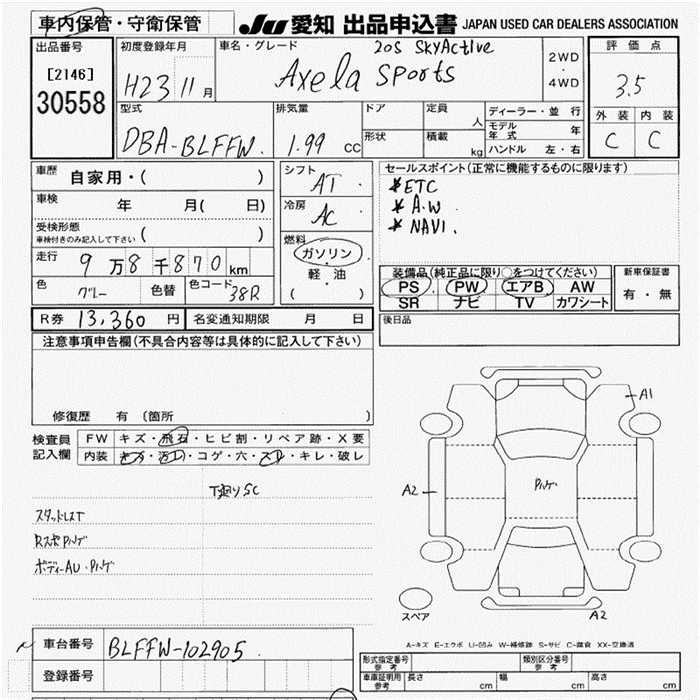 車内保管・守衛保管
JU 愛知 出品申込書 JAPAN USED CAR DEALERS ASSOCIATION
出品番号
[2146]
30558
初度登録年月
H23 11月
車名・グレード
20S SKYActive
Axela Sports
2WD
・
4WD
評価点
3.5
外装 内装
C C
型式
DBA-BLFFW
排気量
1.99 CC
ドア
形状
定員 人
積載 kg
ディーラー・並行
モデル年式 年
ハンドル 左・右
車歴 自家用・( )
車検 年 月( 日)
受検形態
車検付きのみ記入して下さい ( )
走行 9万8千870km
色 グレー 色替 色コード 38R
シフト AT
冷房 AC
燃料
ガソリン
・
軽・油
( )
セールスポイント(正常に機能するものに限ります)
*ETC
*A.W
*NAVI.
装備品(純正品に限り○をつけてください)
PS PW エアB AW
SR ナビ TV カワシート
新車保証書
有・無
R券 13,360円 名変通知期限 月 日
後日品
注意事項申告欄(不具合内容等は具体的に記入して下さい)
修復歴 有 (箇所 )
検査員記入欄
FW キズ・飛石・ヒビ割・リペア跡・X要
内装 キズ・汚レ・コゲ・穴・スレ・キレ・破レ
T廻りSC
スタッドレスT
RスポPハゲ
ボディーAU・Pハゲ
A1
A2
Pハゲ
スペア
A2
A-キズ E-エクボ U-凹み W-補修跡 S-サビ C-腐食 XX-交換済
車台番号 BLFFW-102905
登録番号
形式指定番号 参考
類別区分番号 参考
車庫証明用 参考 長さ cm 幅 cm 高さ cm